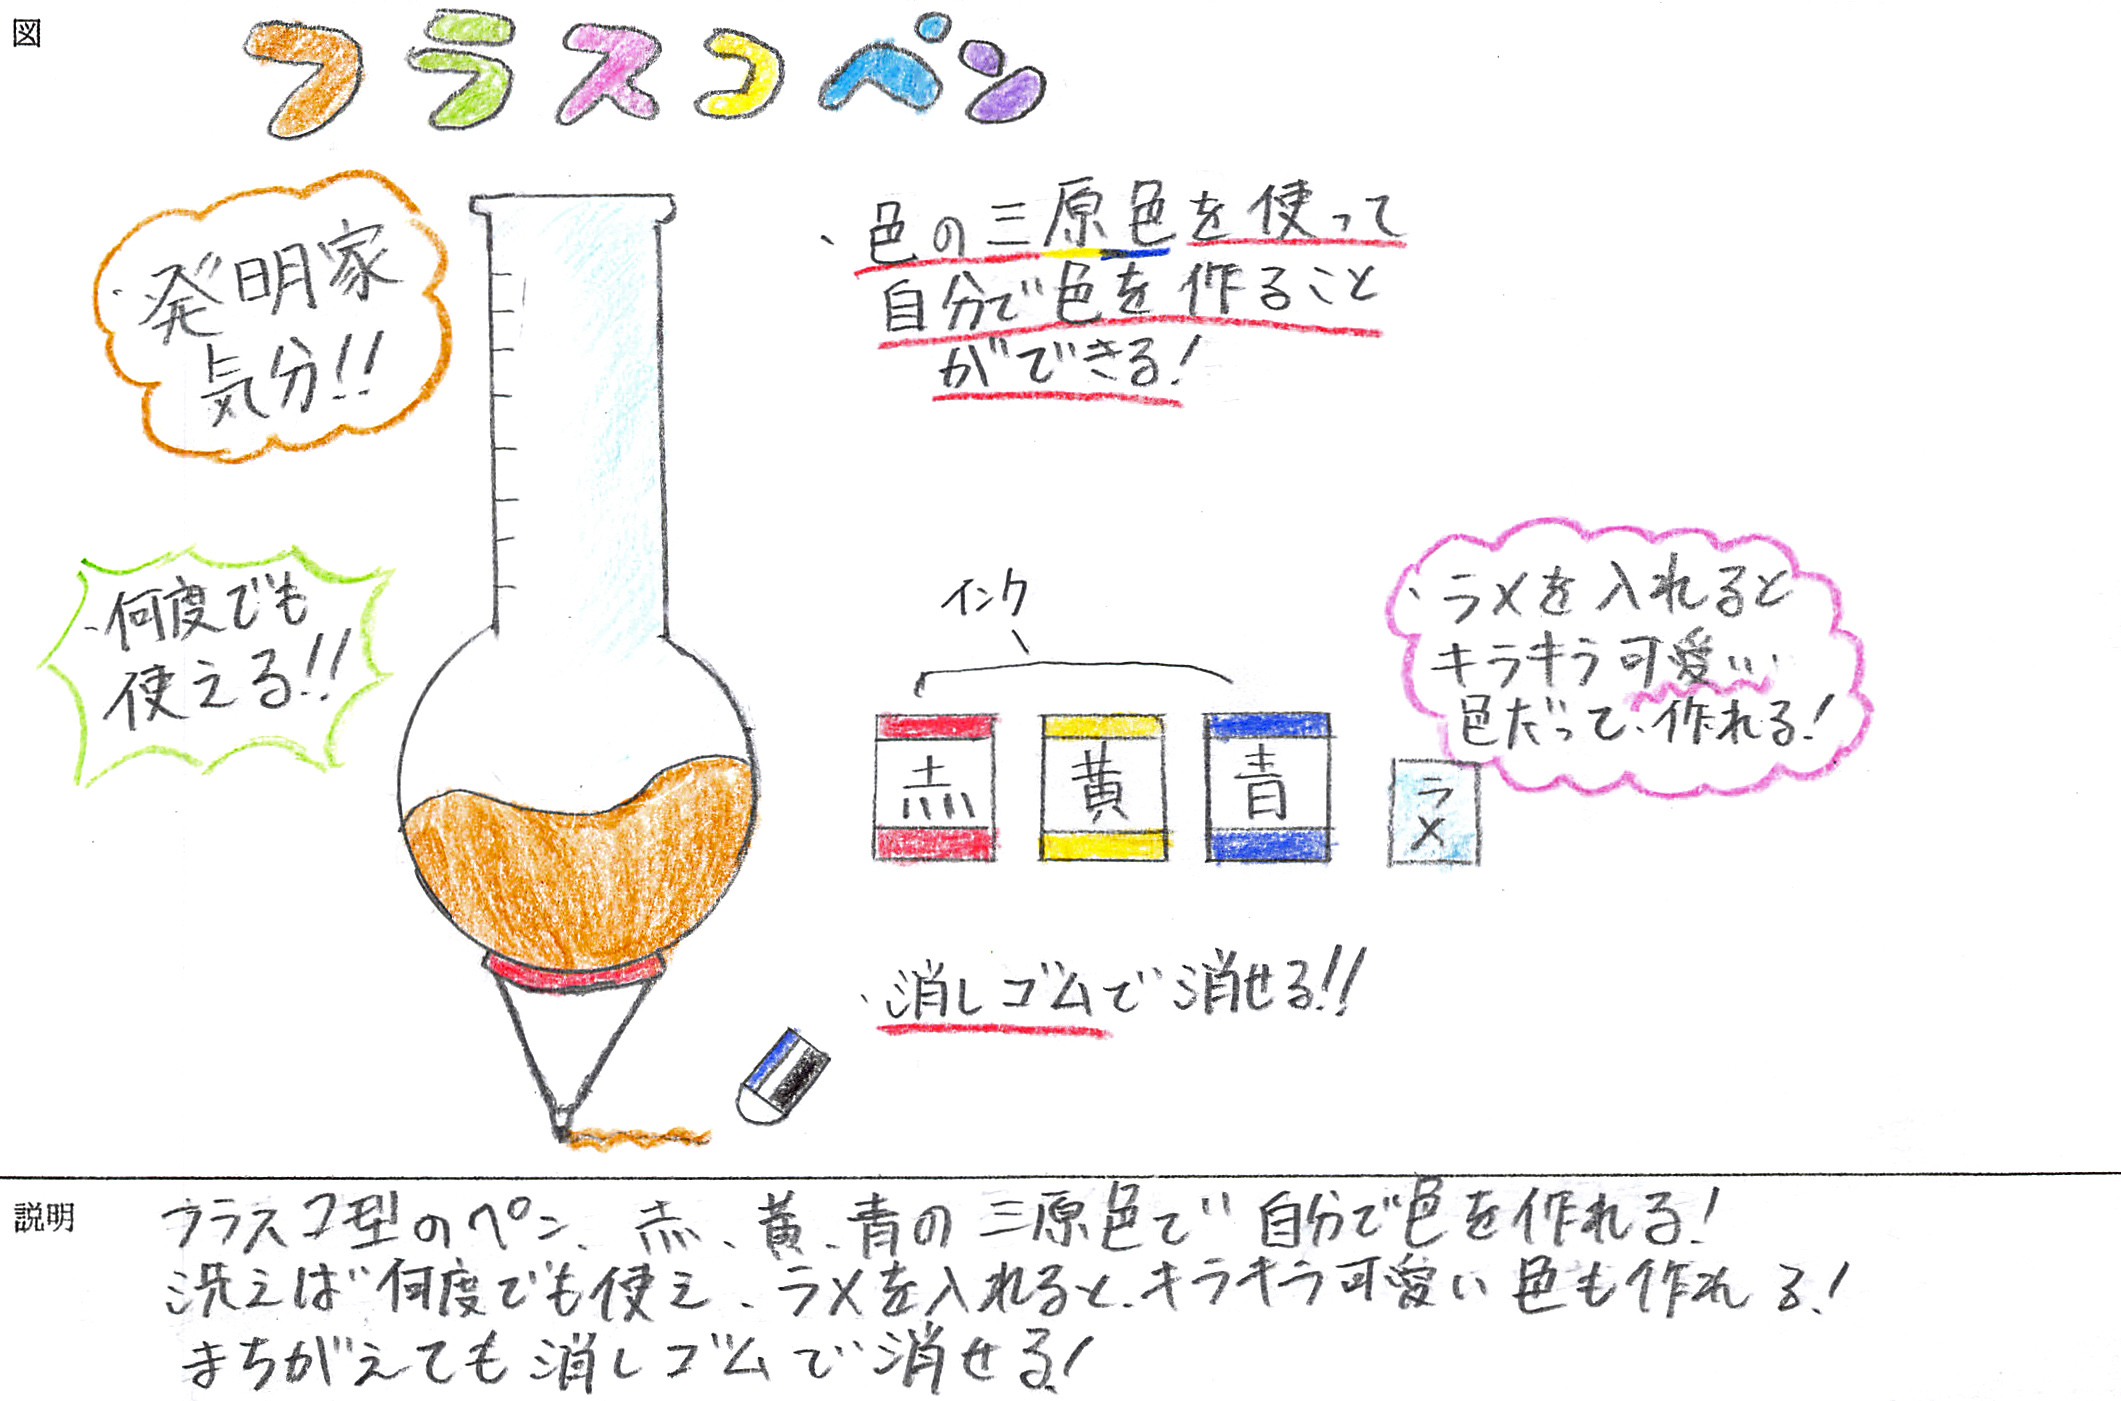 図
フラスコペン
・発明家
気分!!
・色の三原色を使って
自分で色を作ること
ができる!
・何度でも
使える!!
インク
赤
黄
青
ラメ
・ラメを入れると
キラキラ可愛い
色だって、作れる!
・消しゴムで消せる!!
説明
フラスコ型のペン、赤、黄、青の三原色で自分で色を作れる!
洗えば何度でも使え、ラメを入れると、キラキラ可愛い色も作れる!
まちがえても消しゴムで消せる!